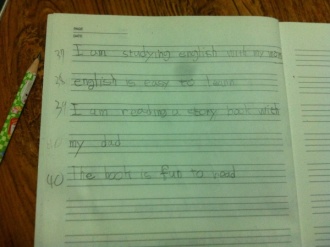 I am studying english with my mom
english is easy to learn
39 I am reading a story book with
my dad
40 The book is fun to read